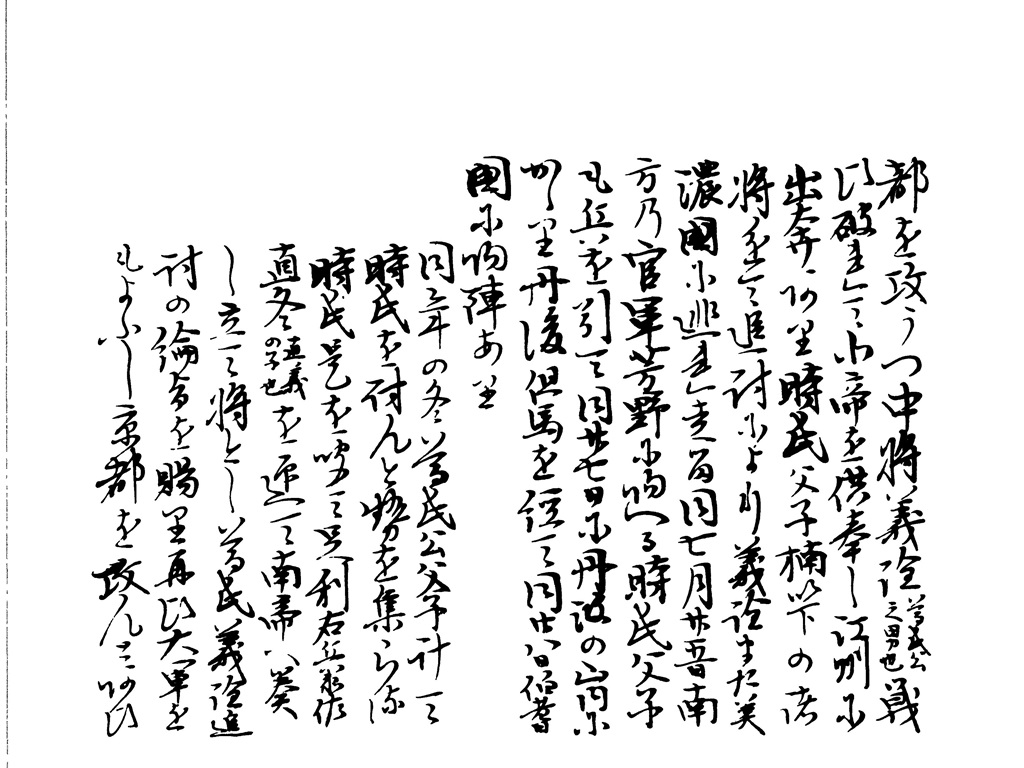 都を攻うつ中将義詮尊氏公之男也戦
ひ破れて北帝を供奉し江州に
出奔ありと時氏父子楠以下の諸
将を追討により義詮また美
濃國に逃れ走る同七月廿五日南
方乃官軍芳野に帰へる時氏父子
も兵を引て同廿七日に丹波の山内に
かゝり丹後但馬を経て同廿八日伯耆
國に帰陣あり
同年の冬尊氏公父子計て
時氏を討んと勢を集らる
時氏是を聞て足利右兵衛佐
直冬直義の子也を迎て南帝へ奏
し立て将とし尊氏義詮追
討の綸旨を賜里再ひ大軍を
もよふし京都を攻んとあひ